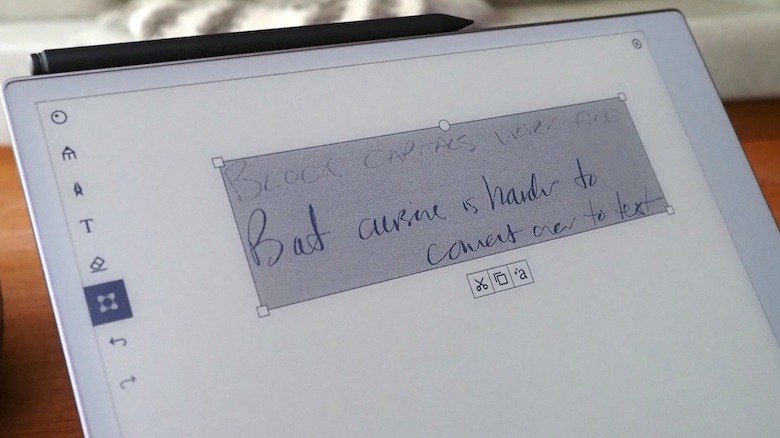 BLOCK CAPITALS WORK FINE
But cursive is harder to
convert over to text
T
a